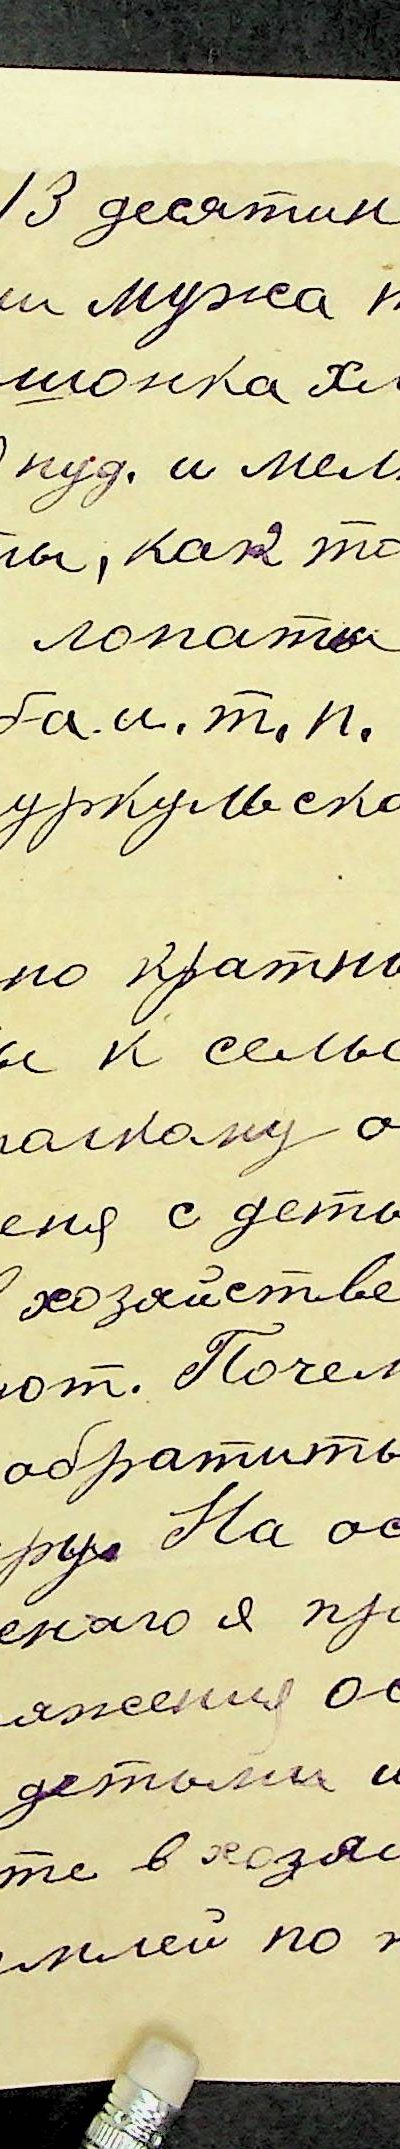 13 десятин
ии мужа п
шонка хл
пуд. и мел
ты, как то
лопаты
ба.и.т.п.
уркульско
но кратны
ы к сельс
кому о
еня с деть
в хозяйстве
ют. Почем
обратить
ру. На ос
енаго я пр
ряжения ос
детьми и
те в хозяй
емлей по